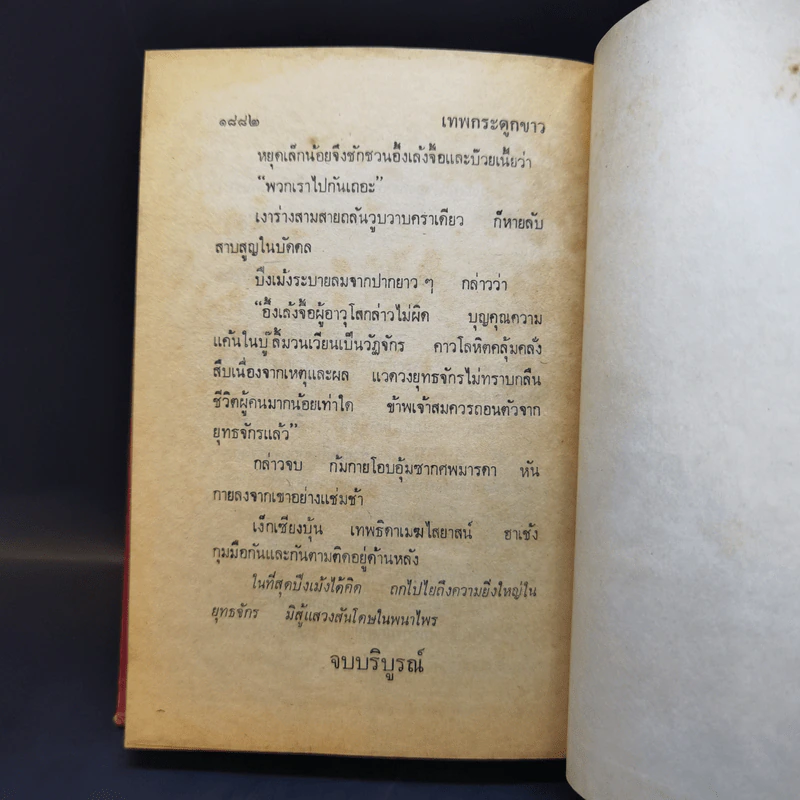 ๑๘๘๒ เทพกระดูกขาว
หยุดเล็กน้อยจึงชักชวนอึ้งเล้งจื้อและบ๊วยเนี้ยว่า
“พวกเราไปกันเถอะ”
เงาร่างสามสายถลันวูบวาบคราเดียว ก็หายลับ
สาบสูญในบัดดล
ปึงเม้งระบายลมจากปากยาว ๆ กล่าวว่า
“อึ้งเล้งจื้อผู้อาวุโสกล่าวไม่ผิด บุญคุณความ
แค้นในบู๊ลิ้มวนเวียนเป็นวัฏจักร คาวโลหิตคลุ้มคลั่ง
สืบเนื่องจากเหตุและผล แวดวงยุทธจักรไม่ทราบกลืน
ชีวิตผู้คนมากน้อยเท่าใด ข้าพเจ้าสมควรถอนตัวจาก
ยุทธจักรแล้ว”
กล่าวจบ ก้มกายโอบอุ้มซากศพมารดา หัน
กายลงจากเขาอย่างแช่มช้า
เง็กเซียงบุ้น เทพธิดาเมฆไสยาสน์ ฮาเซ้ง
กุมมือกันและกันตามติดอยู่ด้านหลัง
ในที่สุดปึงเม้งได้คิด ถกไปไยถึงความยิ่งใหญ่ใน
ยุทธจักร มิสู้แสวงสันโดษในพนาไพร
จบบริบูรณ์